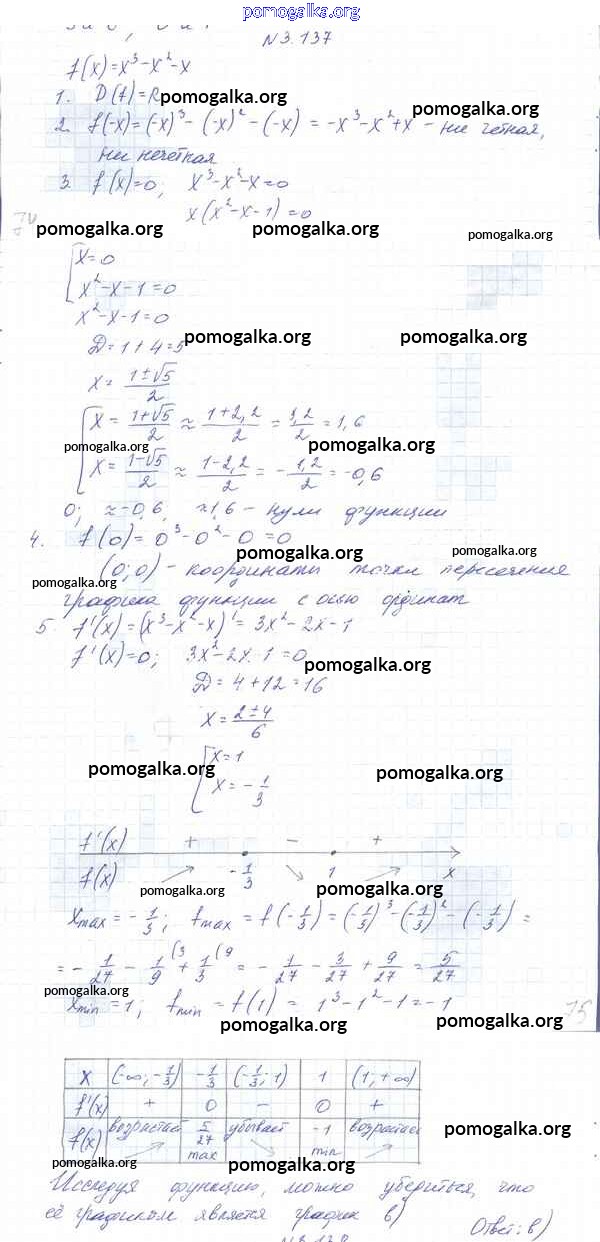 pomogalka.org
N 3.137
f(x)=x³-x²-x
1. D(f)=R pomogalka.org
pomogalka.org
2. f(-x)=(-x)³-(-x)²-(-x)=-x³-x²+x - ни четная,
ни нечётная
3. f(x)=0; x³-x²-x=0
x(x²-x-1)=0
pomogalka.org pomogalka.org pomogalka.org
[x=0
x²-x-1=0
x²-x-1=0
D=1+4=5 pomogalka.org pomogalka.org
x=(1±√5)/2
[x=(1+√5)/2≈(1+2,2)/2=3,2/2=1,6
pomogalka.org pomogalka.org
x=(1-√5)/2≈(1-2,2)/2=-1,2/2=-0,6
0; ≈-0,6, ≈1,6 - нули функции
4. f(0)=0³-0²-0=0
pomogalka.org pomogalka.org
(0;0) - координаты точки пересечения
pomogalka.org
графика функции с осью ординат
5. f'(x)=(x³-x²-x)'=3x²-2x-1
f'(x)=0; 3x²-2x-1=0
pomogalka.org
D=4+12=16
x=(2±4)/6
[x=1
x=-1/3
pomogalka.org pomogalka.org
f'(x) + - +
f(x) -1/3 1 x
pomogalka.org pomogalka.org
xmax=-1/3; fmax=f(-1/3)=(-1/3)³-(-1/3)²-(-1/3)=
=-1/27-1/9(3+1/3(9=-1/27-3/27+9/27=5/27
pomogalka.org
xmin=1; fmin=f(1)=1³-1²-1=-1
pomogalka.org pomogalka.org
75
x (-∞;-1/3) -1/3 (-1/3;1) 1 (1;+∞)
f'(x) + 0 - 0 +
f(x) возрастает 5/27 max убывает -1 min возрастает
pomogalka.org
pomogalka.org pomogalka.org
Исследуя функцию, можно убериться, что
её графиком является график в)
Ответ: в)